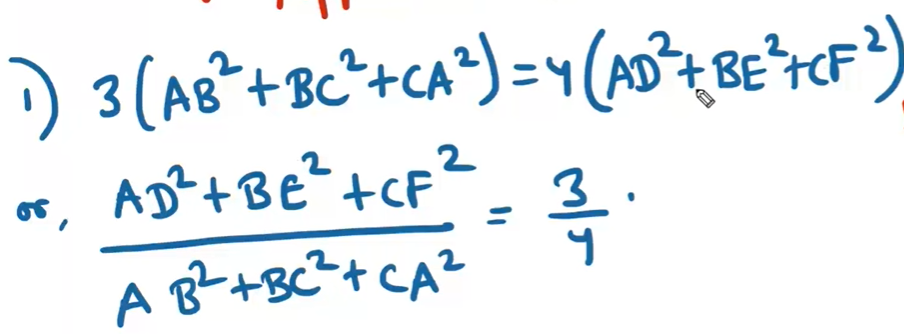 1) 3(AB²+BC²+CA²)=4(AD²+BE²+CF²)
or, (AD²+BE²+CF²)/(AB²+BC²+CA²) = 3/4.